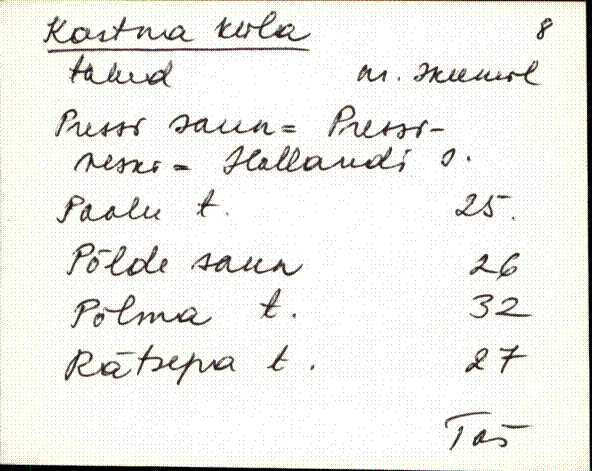 Kastna küla 8
talud nr. skeemil
Pressi saun = Pressi-
= Hollandi s.
Paalu t. 25.
Põlde saun 26
Põlma t. 32
Rätsepa t. 27